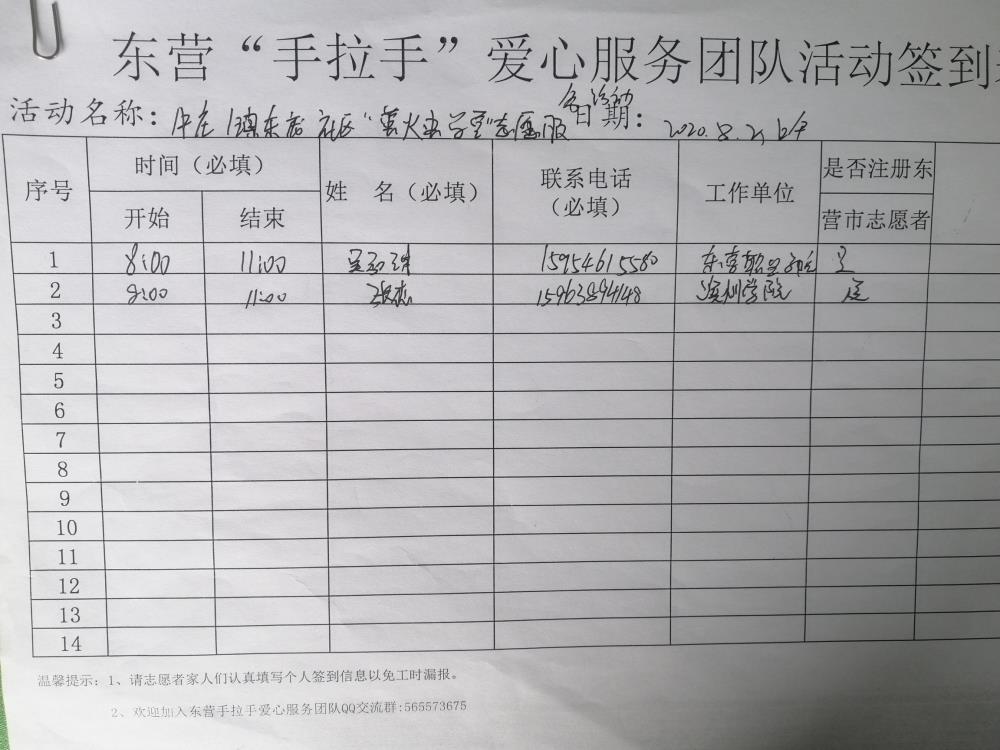 东营“手拉手”爱心服务团队活动签到
活动名称： 社区“萤火虫学堂”志愿服务活动 日期：2020.8.2
序号 时间（必填） 姓 名（必填） 联系电话（必填） 工作单位 是否注册东营市志愿者
开始 结束
1 8:00 11:00 15954615580 东营职业学院 是
2 8:00 11:00 张杰 15963894148 滨州学院 是
3
4
5
6
7
8
9
10
11
12
13
14
温馨提示：1、请志愿者家人们认真填写个人签到信息以免工时漏报。
2、欢迎加入东营手拉手爱心服务团队QQ交流群:565573675